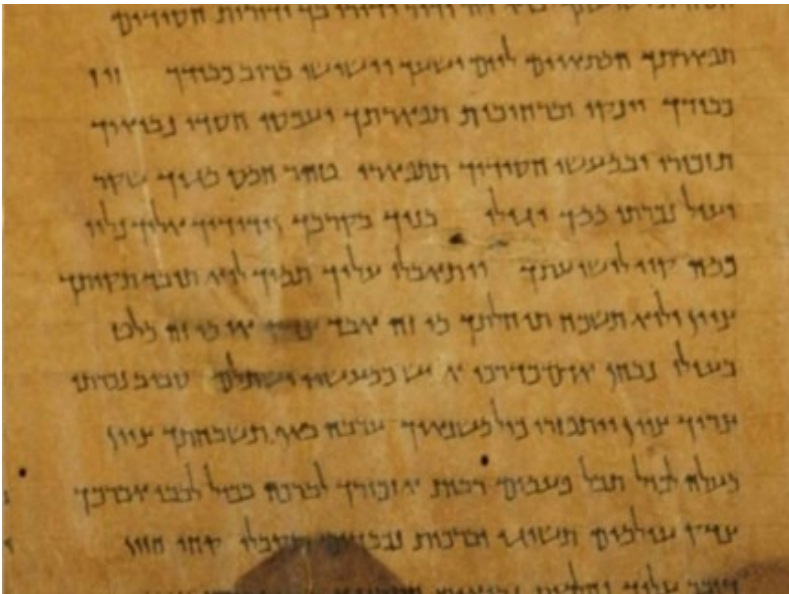 ודור ידורו בך ודורות חסידים
תפארתך המתאוים ליום ישעך וישישו ברוב כבודך זיז
כבודך יינקו וברחובות תפארתך יעכסו חסדי נביאיך
תזכורי ובמעשי חסידיך תתפארי טהר חמס מגוך שקר
ועול נכרתו ממך יגילו בניך בקרבך וידידיך אליך נלוו
כמה קוו לישועתך ויתאבלו עליך תמיך לוא תובד תקותך
ציון ולוא תשכח תוחלתך מי זה אבד צדק או מי זה מלט
בעולו נבחן אדם כדרכו איש כמעשיו ישתלם סביב נכרתו
צריך ציון ויתפזרו כול משנאיך ערבה באף תשבחתך ציון
מעלה לכול תבל פעמים רבות אזכורך לברכה בכול לבבי אברכך
צדק עולמים תשיגי וברכות נכבדים תקבלי קחי חזון
דובר עליך וחלמות נביאים